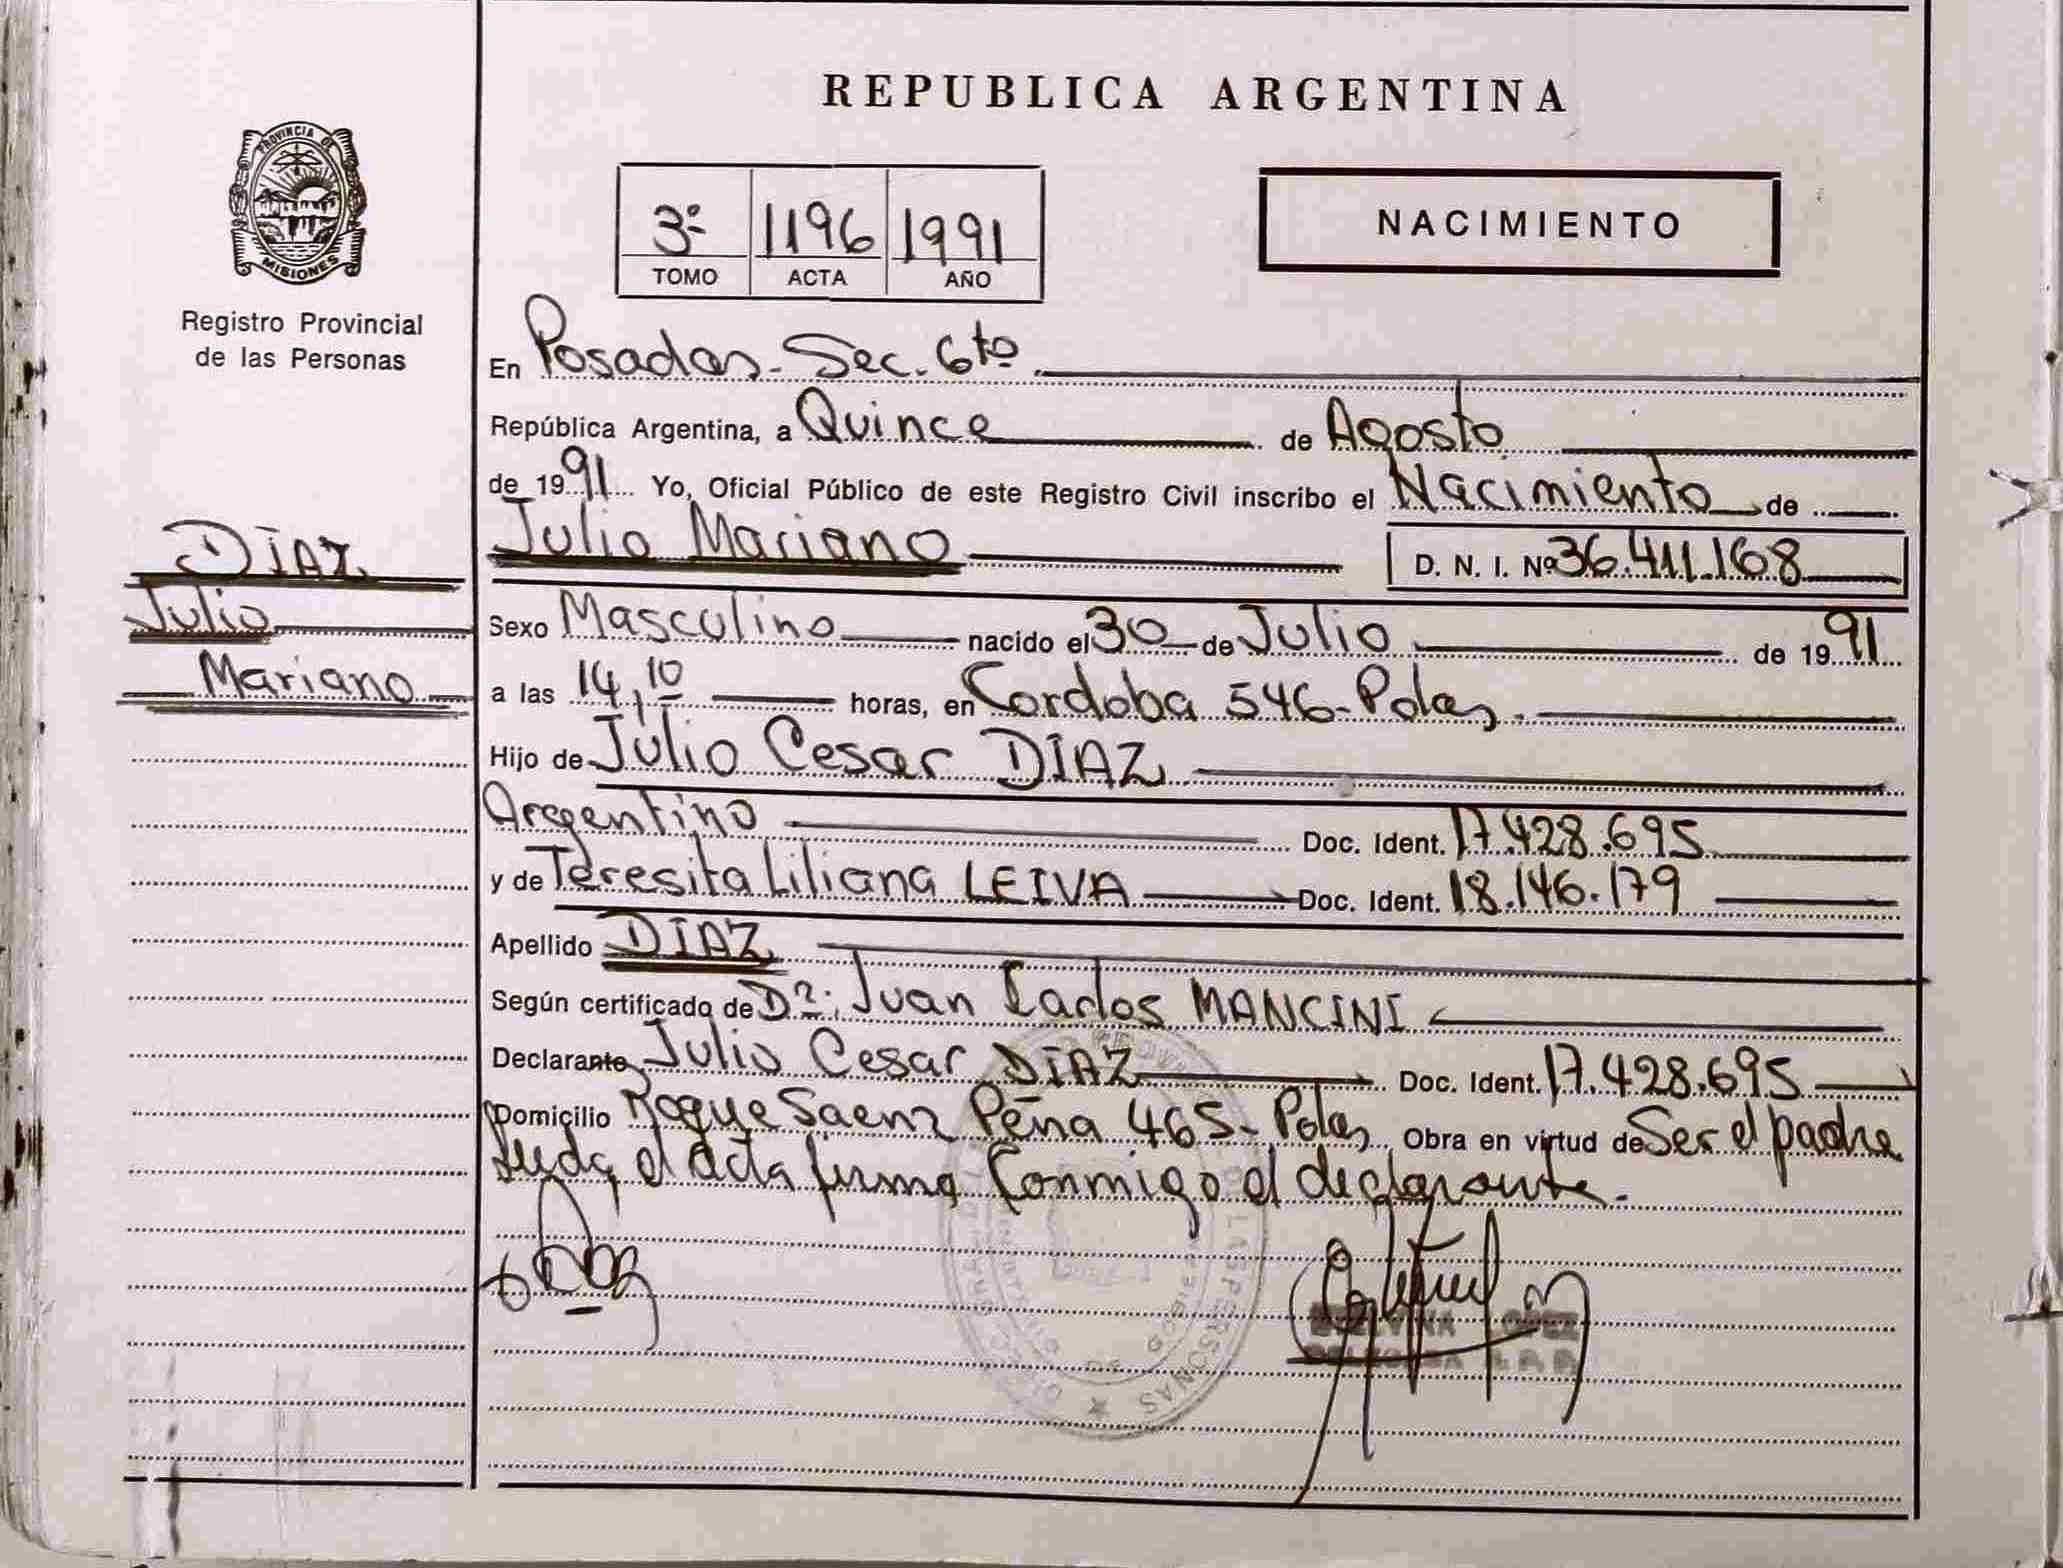 REPUBLICA ARGENTINA
PROVINCIA DE
MISIONES
Registro Provincial
de las Personas
3º 1196 1991
TOMO ACTA AÑO
NACIMIENTO
En Posadas - Sec. 6to.
República Argentina, a Quince de Agosto
de 1991 Yo, Oficial Público de este Registro Civil inscribo el Nacimiento de
Julio Mariano D. N. I. Nº 36.411.168
DIAZ
Julio
Mariano
Sexo Masculino nacido el 30 de Julio de 1991
a las 14,10 horas, en Cordoba 546 - Pdas.
Hijo de Julio Cesar DIAZ
Argentino Doc. Ident. 17.428.695
y de Teresita Liliana LEIVA Doc. Ident. 18.146.179
Apellido DIAZ
Según certificado de Dr: Juan Carlos MANCINI
Declarante Julio Cesar DIAZ Doc. Ident. 17.428.695
Domicilio Roque Saenz Peña 465 - Pdas Obra en virtud de Ser el padre
Leida el acta firma Conmigo el declarante.
LAS PERSONAS